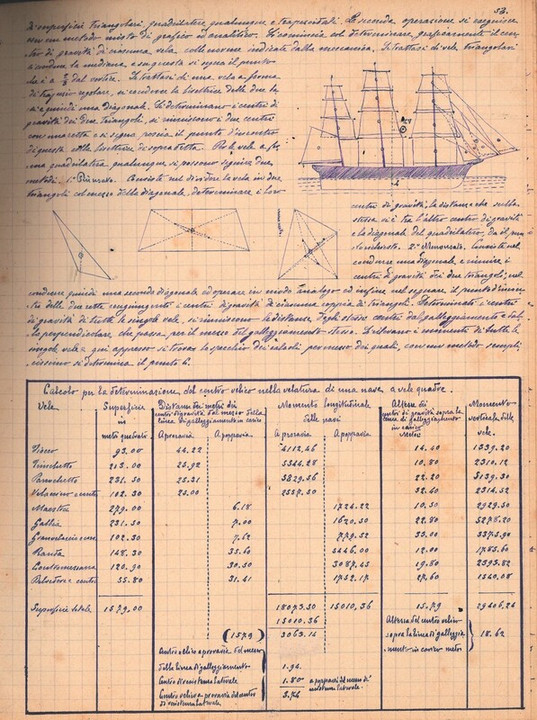 53.
di superficie triangolari, quadrilatere qualunque e trapezoidali. La seconda operazione si eseguisce
con un metodo misto di grafico ed analitico. Si comincia col determinare graficamente il cen-
tro di gravità di ciascuna vela col metodo indicato dalla meccanica. Se trattasi di vele triangolari
si conduce la mediana e su questa si segna il punto
che è a 2/3 dal vertice. Se trattasi di una vela a forma
di trapezio regolare, si conduce la bisettrice delle due basi
e quindi una diagonale. Si determinano i centri di
gravità dei due triangoli, si uniscono i due centri
con una retta e si segna poscia il punto d'incontro
di questa colla bisettrice di sopra detta. Per le vele a for-
ma quadrilatera qualunque si possono seguire due
metodi. 1° Più usato. Consiste nel dividere la vela in due
triangoli col mezzo della diagonale, determinare i loro
centri di gravità, la distanza che sulla
stessa vi è tra l'altro centro di gravità
e la diagonale del quadrilatero, dà il pun-
to richiesto. 2° Consiste nel
condurre una diagonale, e unire i
centri di gravità dei due triangoli, nel
condurre quindi una seconda diagonale ed operare in modo analogo ed infine nel segnare il punto d'incon-
tro delle due rette congiungenti i centri di gravità di ciascuna coppia di triangoli. Determinati i centri
di gravità di tutte le singole vele, si misurano le distanze degli stessi centri dal galleggiamento e dal-
la perpendicolare che passa per il mezzo del galleggiamento stesso. Si ricavano i momenti di tutte le
singole vele e qui appresso si trova lo specchio dei calcoli per mezzo dei quali, con un metodo sempli-
cissimo si determina il punto C.
Calcolo per la determinazione del centro velico nella velatura di una nave a vele quadre.
Vele. Superficie in metri quadrati Distanza dei centri di gravità dal mezzo della linea di galleggiamento in carico Momento longitudinale delle vele Altezza dei centri di gravità sopra la linea di galleggiamento in carico Metri Momento verticale delle vele.
A proravia A poppavia A proravia A poppavia
Fiocco 93.00 44.22 4112.46 14.40 1339.20
Trinchetto 215.00 25.92 5344.28 10.80 2310.12
Parrochetto 231.50 25.31 5829.36 22.20 5139.30
Velaccino e contro 102.30 25.00 2557.50 32.60 3314.52
Maestra 279.00 6.18 1724.22 10.50 2929.50
Gabbia 231.50 7.00 1620.50 22.80 5278.20
Gran velaccio e contro 102.30 7.62 779.52 33.00 3375.90
Randa 148.30 35.60 5446.00 12.00 1785.60
Contromezzana 120.90 30.50 3087.45 19.80 2393.82
Belvedere e contro 55.80 31.41 1752.17 27.60 1540.08
Superficie totale 1579.00 18073.50 15010.36 15.79 29406.24
15010.36
(1579) 3063.14
Altezza del centro velico
sopra la linea di galleggia-
mento in carico metri
18.62
Centro velico a proravia del mezzo
della linea di galleggiamento 1.94
Centro di resistenza laterale 1.80 a poppavia del
Centro velico a proravia del centro
di resistenza laterale 3.74